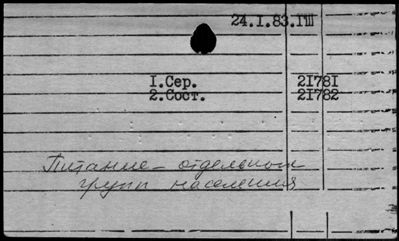 24.I.83.ГШ
I.Сер. 2I78I
2.Сост. 2I782
Питание – отдельных
групп населения